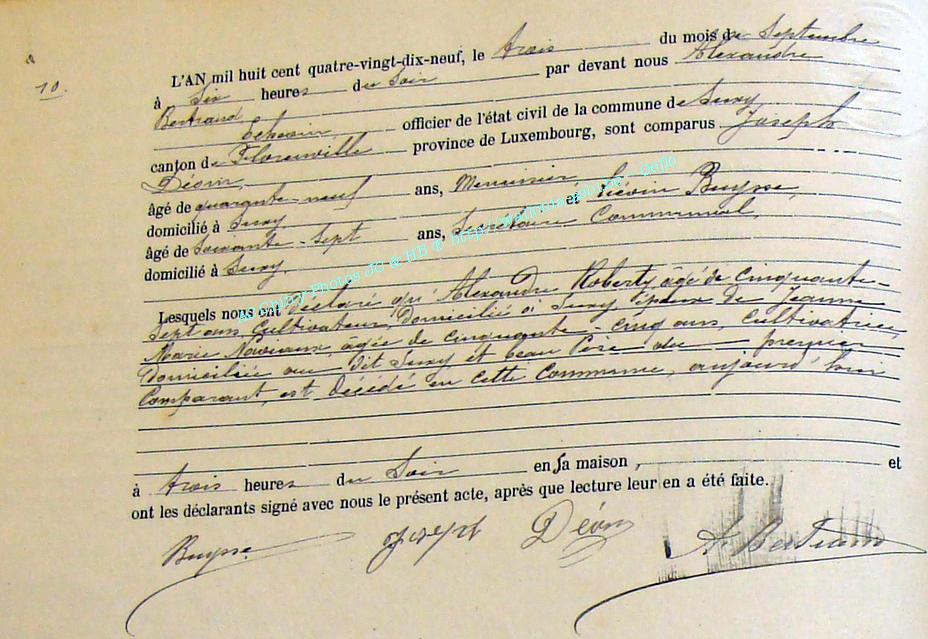 10.
L'AN mil huit cent quatre-vingt-dix-neuf, le trois du mois de Septembre
à Six heures du Soir par devant nous Alexandre
Bertrand
Echevin, officier de l'état civil de la commune de Suxy,
canton de Florenville province de Luxembourg, sont comparus Joseph
Déom,
âgé de quarante-neuf ans, Menuisier,
domicilié à Suxy, et Liévin Buysse,
âgé de Soixante-Sept ans, Secrétaire Communal,
domicilié à Suxy.
Lesquels nous ont déclaré qu'Alexandre Roberty âgé de cinquante-
sept ans, Cultivateur, Domicilié à Suxy époux de Jeanne
Marie Noviaux, âgée de cinquante-cinq ans, Cultivatrice,
Domiciliée au dit Suxy et beau Père du premier
Comparant, est Décédé en cette Commune, aujourd'hui
à trois heures du Soir en sa maison, et
ont les déclarants signé avec nous le présent acte, après que lecture leur en a été faite.
Buysse Joseph Déom A Bertrand